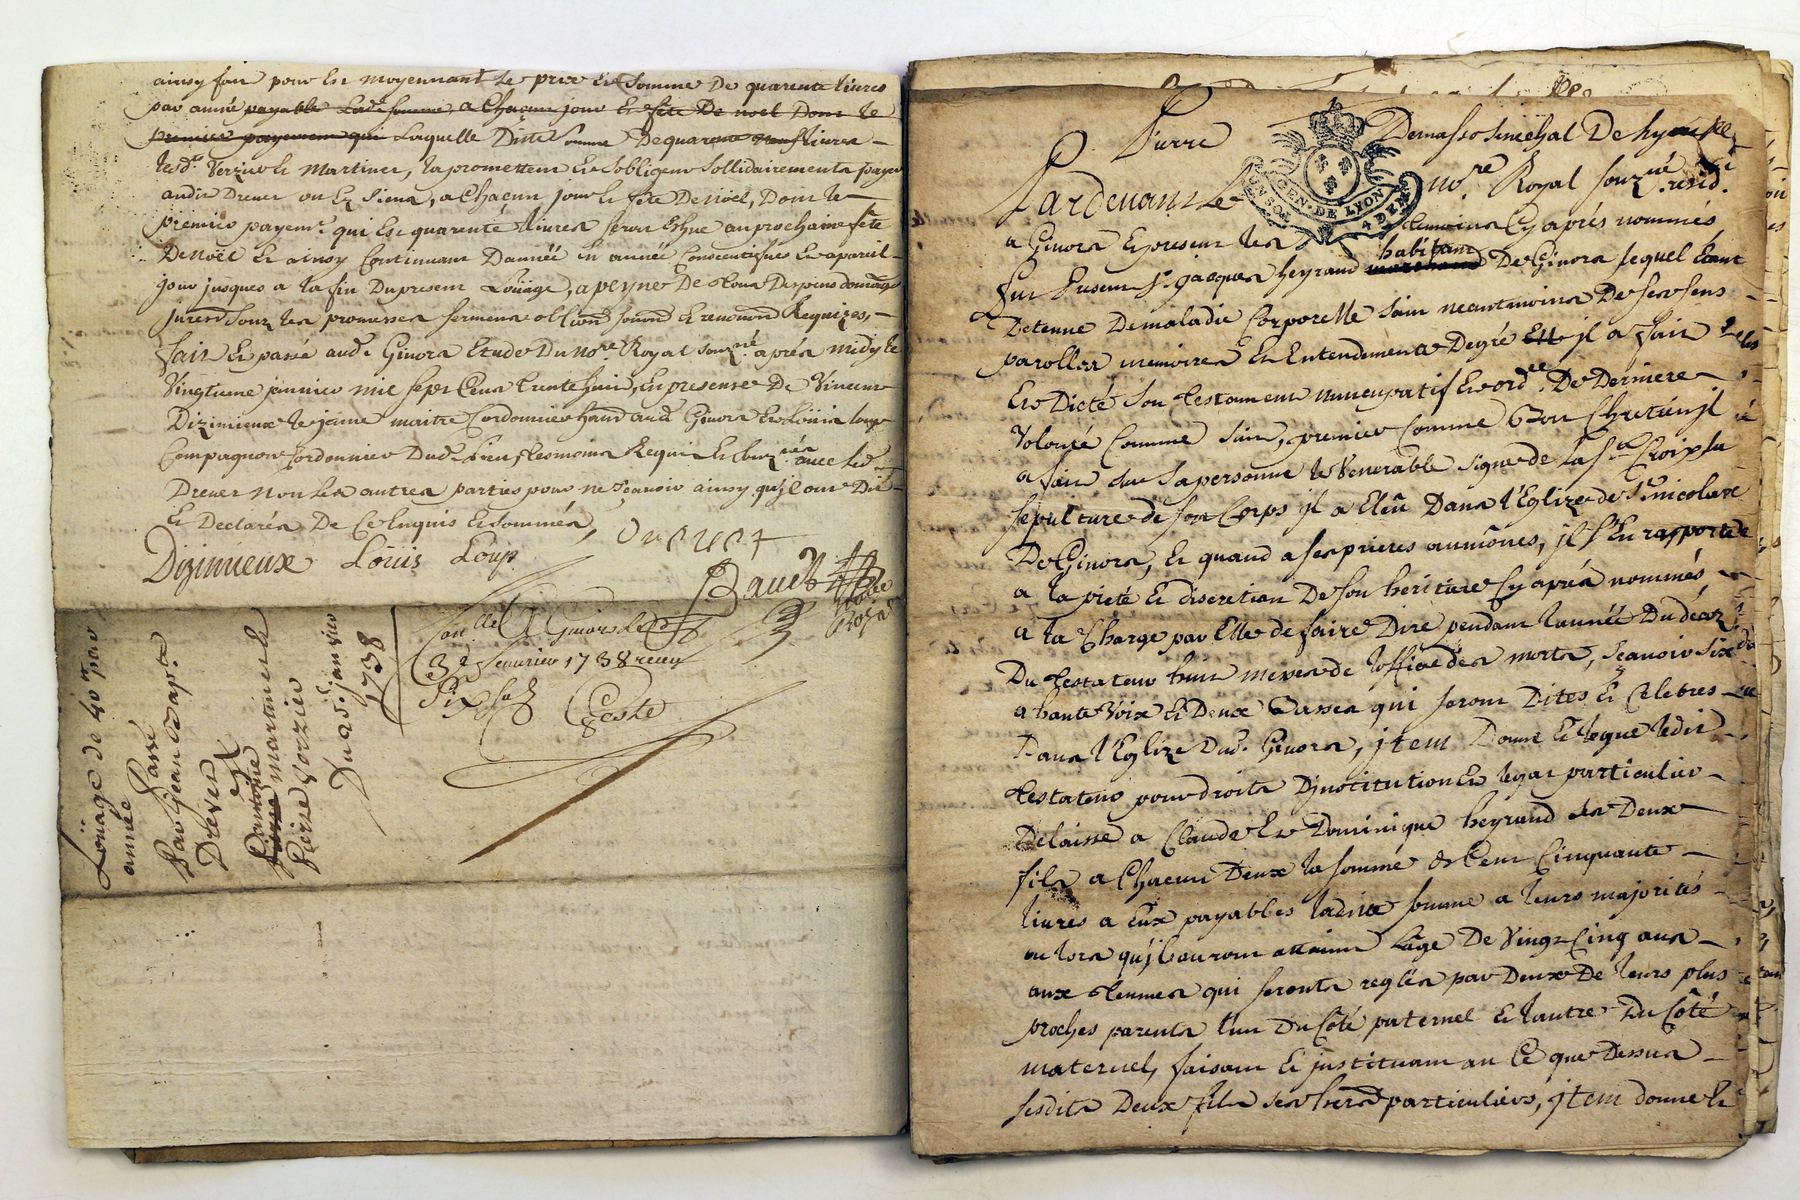 ainsy fait pour Et moyennant Le prix Et somme De quarente livres
par année payable Ladte somme a Chacun jour Et fete De noel Dont le
premier payement qui Laquelle Ditte somme De quarente livres
Verzier Et Martinet, la promettent Et s'obligent sollidairement a payer
audit Drevet ou Ez siens, a Chacun jour Et fete De Noël, Dont le
premier payemt. qui Est quarente livres sera Eshue au prochaine fête
De Noël Et ainsy Continuant D'année En année Consecutifues Et a pareil
jour jusques a la fin Du present Loüage, a peyne De tous Despens domage
jurend souz les promesses serments obliond soumond Et renoncond Requizes,
fait Et passé aud. Givors Etude Du nore. Royal souzné après midy le
Vingt jenvier mil sept Cens trente huit, En presence De Vincent
Dizimieux le jeune maitre Cordonnier habant aud. Givors Et Loüis Loup
Compagnon Cordonnier Dud. Lieu, tesmoins Requis Et avec led.
Drevet non les autres parties pour ne sçauoir ainsy qu'il ont Dit
Et Declarés De Ce Enquis Et sommés,
Dizimieux Louis Loup Drevet
Baudt
Royal
Conllé A Givors le
3e feuurier 1738 receu
Six sols
Coste
Loüage de 40 ₶ par
année
Passé
Par jean Bapte.
Drevet
a
pierre antoine martinet &
Pierre Verzier
Du 25e. janvier
1738
Pierre Demasso senechal De Lyon
GEN. DE LYON
4 DEN
Pardevant Le nore Royal souzné resid.
a Givors Et present les temoins Cy après nommés
fut Present Sr. jacques heyraud marchand habitant De Givors lequel Etant
Detenu De maladie Corporelle sain neantmoins De ses sens
parolles memoires Et Entendement De gré Et il a fait
Et Dicté son testament nuncupatif Et ordre. De Derniere
Volonté Comme suit, premier Comme Bon Chretien jl
a fait sur sa personne le Venerable signe de la Ste Croix sa
sepulture de son Corps jl a Eleû Dans l'Eglize de St. nicolas
De Givors, Et quand a ses prieres aumônes, jl s'En rapporte
a la pieté Et discretion De son heritiere Cy après nommés
a la Charge par Elle de faire Dire pendant l'année Du déces
Du testateur huit messes de l'office des morts, sçauoir six
a haute Voix Et Deux Basses qui seront Dites Et Celebrés
Dans l'Eglize Dud. Givors, jtem Donne Et legue ledit
testateur pour droits D'jnstitution Et legat particulier
Delaissé a Claude Et Dominique heyraud ses Deux
fils a Chacun Deux la somme de Cent Cinquante
livres a Eux payables ladite somme a leurs majorités
ou lors qu'jl auront attaint l'age De Vingt Cinq ans
aux termes qui seronts reglés par Deux De leurs plus
proches parents l'un Du Côté paternel Et l'autre Du Côté
maternel, faisant Et jnstituant au Ce que Dessus
sesdits Deux fils ses heres particuliers, jtem donne Et